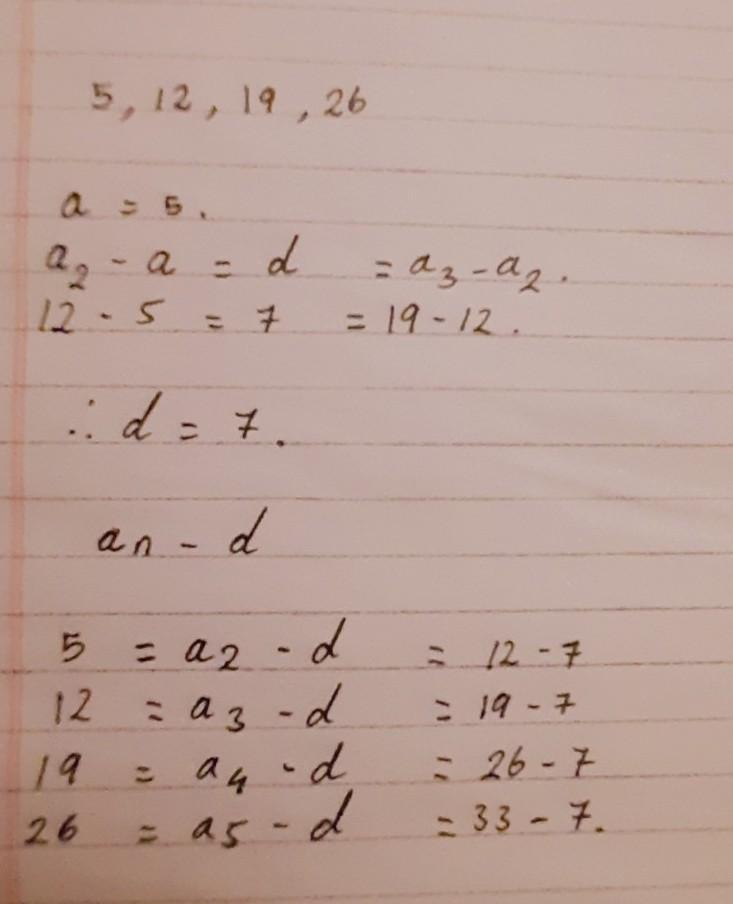 5, 12, 19, 26
a = 5.
a₂ - a = d = a₃ - a₂.
12 - 5 = 7 = 19 - 12.
∴ d = 7.
aₙ - d
5 = a₂ - d = 12 - 7
12 = a₃ - d = 19 - 7
19 = a₄ - d = 26 - 7
26 = a₅ - d = 33 - 7.